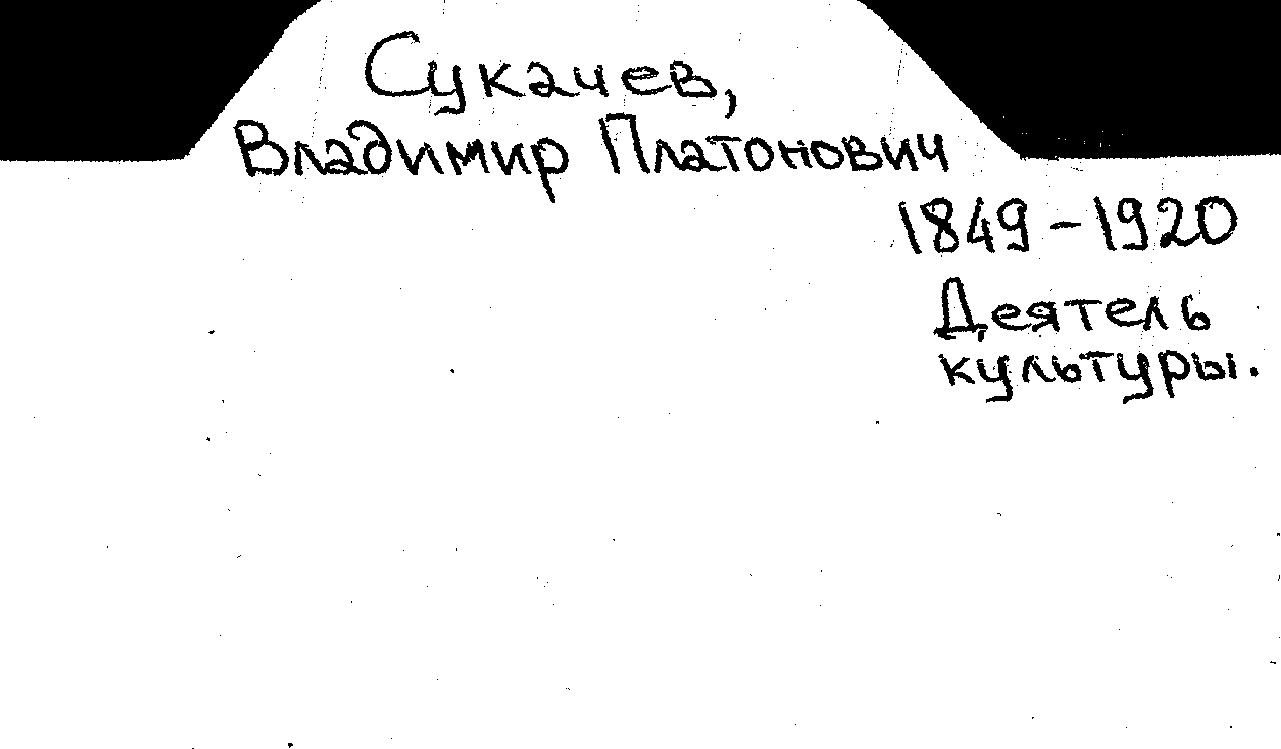 Сукачев,
Владимир Платонович
1849-1920
Деятель
культуры.